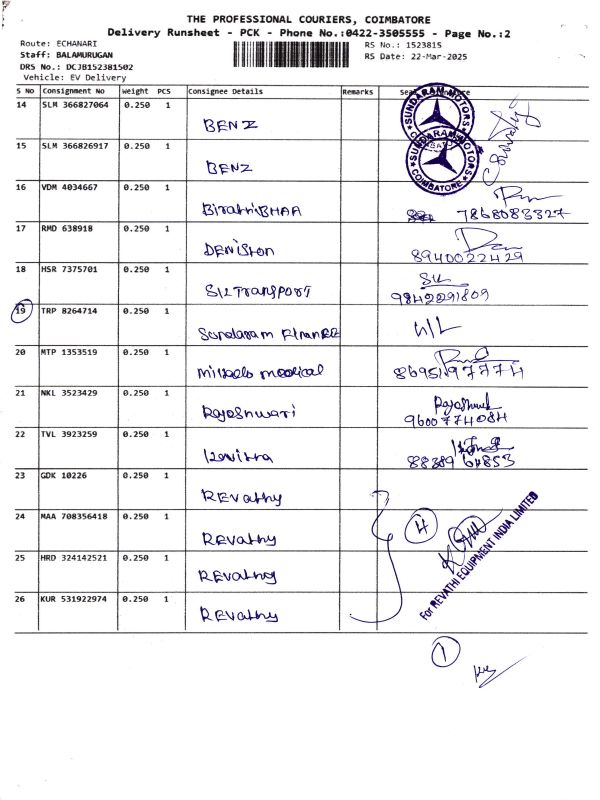 THE PROFESSIONAL COURIERS, COIMBATORE
Delivery Runsheet - PCK - Phone No.:0422-3505555 - Page No.:2
Route: ECHANARI
RS No.: 1523815
Staff: BALAMURUGAN
RS Date: 22-Mar-2025
DRS No.: DCJB152381502
Vehicle: EV Delivery
S No Consignment No Weight PCS Consignee Details Remarks
14 SLM 366827064 0.250 1 BENZ
SUNDARAM MOTORS
15 SLM 366826917 0.250 1 BENZ
SUNDARAM MOTORS COIMBATORE
16 VDM 4034667 0.250 1 7868083327
17 RMD 638918 0.250 1 DENISTON 8940022429
18 HSR 7375701 0.250 1 SK TRANSPORT SK 9842291809
19 TRP 8264714 0.250 1 Sundaram
20 MTP 1353519 0.250 1 medical 8695197774
21 NKL 3523429 0.250 1 Rajeshwari 9600774084
22 TVL 3923259 0.250 1 Kavitha 8838964853
23 GDK 10226 0.250 1 REvathy
24 MAA 708356418 0.250 1 REvathy 4
25 HRD 324142521 0.250 1 REvathy
26 KUR 531922974 0.250 1 REvathy
For REVATHI EQUIPMENT INDIA LIMITED
1